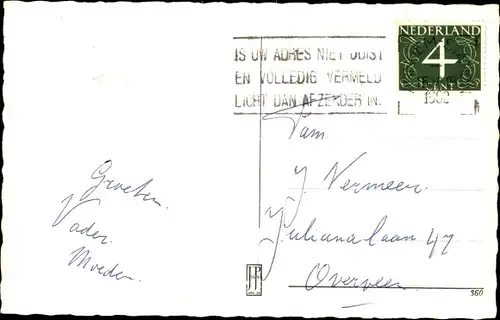 NEDERLAND
4
CENT
IS UW ADRES NIET JUIST
EN VOLLEDIG VERMELD
LICHT DAN AFZENDER IN.
1962
Fam.
J Vermeer.
Julianalaan 47
Overveen
Groeten
Vader
Moeder
JP
360